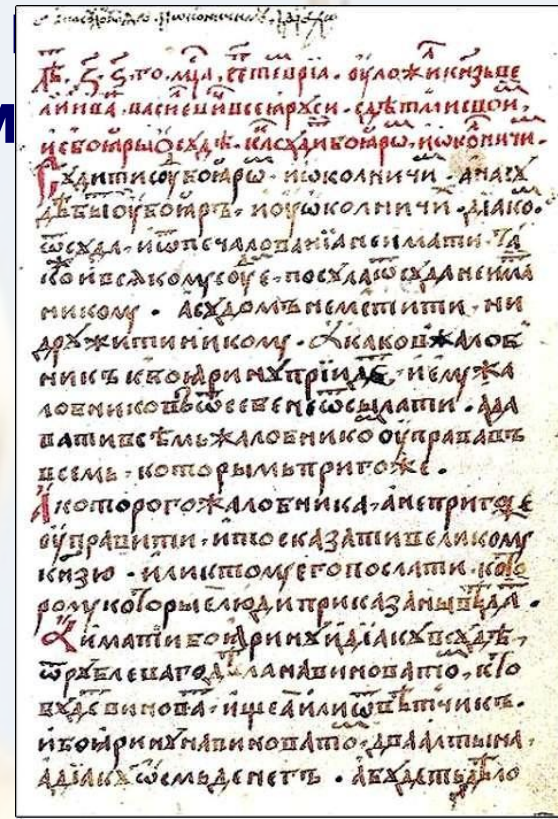 М
лѣ. ҂з. s҃. то. мц҃а, септевріа. оуложи кнѧзь ве
ликїи. васиеи
и с боѧры о судѣ. какъ судити боѧрѡ, и ѡколничи.
Судити суⷣ боѧрѡ. и ѡколничи. а на су
дѣ быти оу боѧръ. и оу ѡколничи. діако.
ѿ суда. и ѿ печалованїа не имати. та
ко и всѧкому суⷣе. посула ѿ суда не има
никому. а судомъ не мстити. ни
дружити никому. А каковъ жалоб
никъ к боѧрину прїидеⷮ. и ему жа
лобниковъ ѿ себе не ѿсылати. а да
вати всѣмъ жалобнико оуправавъ
всемь. которымъ пригоже.
А которого жалобника, а не пригоже
оуправити. и то сказати великому
кнѧзю. или к тому его послати. кото
рому которые люди приказаны вѣда.
А имати боѧрину и діаку в судѣ,
ѿ рублеваго дѣла на виноватѡ, кто
будеⷮ виноваⷮ. ищеа или ѿвѣтчикъ.
и боѧрину на виноватѡ, два алтына.
а діаку ѡсмь денегъ. а будеть дѣло